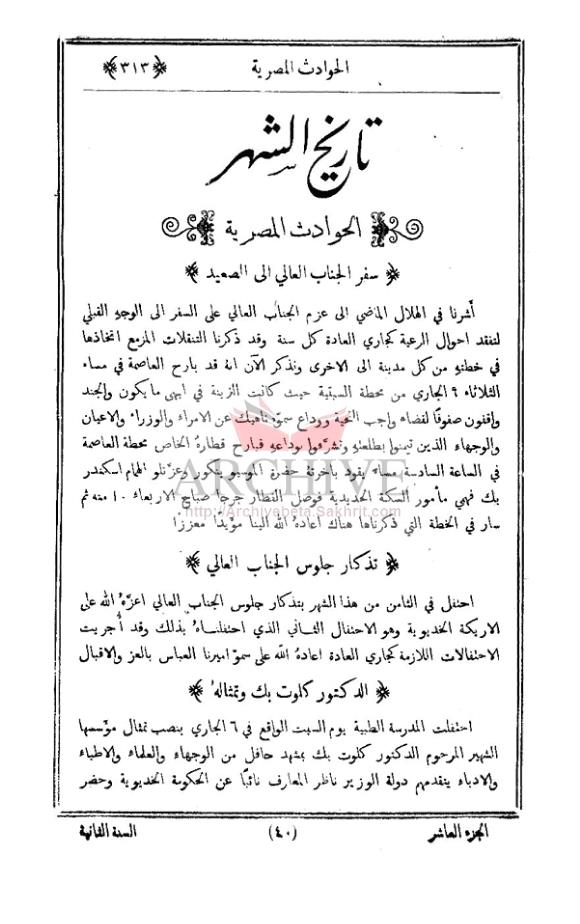 الحوادث المصرية ﴿٣١٣﴾
تاريخ الشهر
الحوادث المصرية
﴿ سفر الجناب العالي الى الصعيد ﴾
أشرنا في الهلال الماضي الى عزم الجناب العالي على السفر الى الوجه القبلي
لتفقد احوال الرعية كجاري العادة كل سنة وقد ذكرنا التنقلات المزمع اتخاذها
في خطته من كل مدينة الى الاخرى ونذكر الآن انه قد بارح العاصمة في مساء
الثلاثاء ٩ الجاري من محطة السبتية حيث كانت الزينة في ابهى ما يكون والجند
واقفون صفوفًا لقضاء واجب التحية ووداع سموه ناهيك عن الامراء والوزراء والاعيان
والوجهاء الذين تيمنوا بطلعته وتشرفوا بوداعه فبارح قطاره الخاص محطة العاصمة
في الساعة السادسة مساء يقود باخرته حضرة الموسيو ينكور وعزتلو الهمام اسكندر
بك فهمي مأمور السكة الحديدية فوصل القطار جرجا صباح الاربعاء ١٠ منه ثم
سار في الخطة التي ذكرناها هناك اعاده الله الينا مؤيدًا معززًا
﴿ تذكار جلوس الجناب العالي ﴾
احتفل في الثامن من هذا الشهر بتذكار جلوس الجناب العالي اعزه الله على
الاريكة الخديوية وهو الاحتفال الثاني الذي احتفلناه بذلك وقد أجريت
الاحتفالات اللازمة كجاري العادة اعاده الله على سمو اميرنا العباس بالعز والاقبال
﴿ الدكتور كلوت بك وتمثاله ﴾
احتفلت المدرسة الطبية يوم السبت الواقع في ٦ الجاري بنصب تمثال مؤسسها
الشهير المرحوم الدكتور كلوت بك بمشهد حافل من الوجهاء والعلماء والاطباء
والادباء يتقدمهم دولة الوزير ناظر المعارف نائبًا عن الحكومة الخديوية وحضر
الجزء العاشر (٤٠) السنة الثانية
ARCHIVE
http://Archivebeta.Sakhrit.com